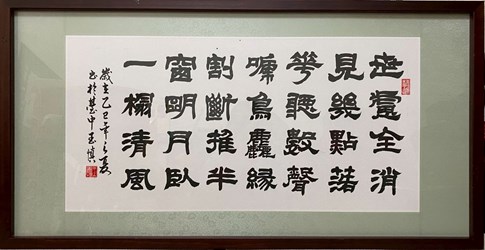 世慮全消
見幾點落
花聽數聲
啼鳥塵緣
割斷推半
窗明月臥
一榻清風
歲在乙巳年之夏
書於臺中